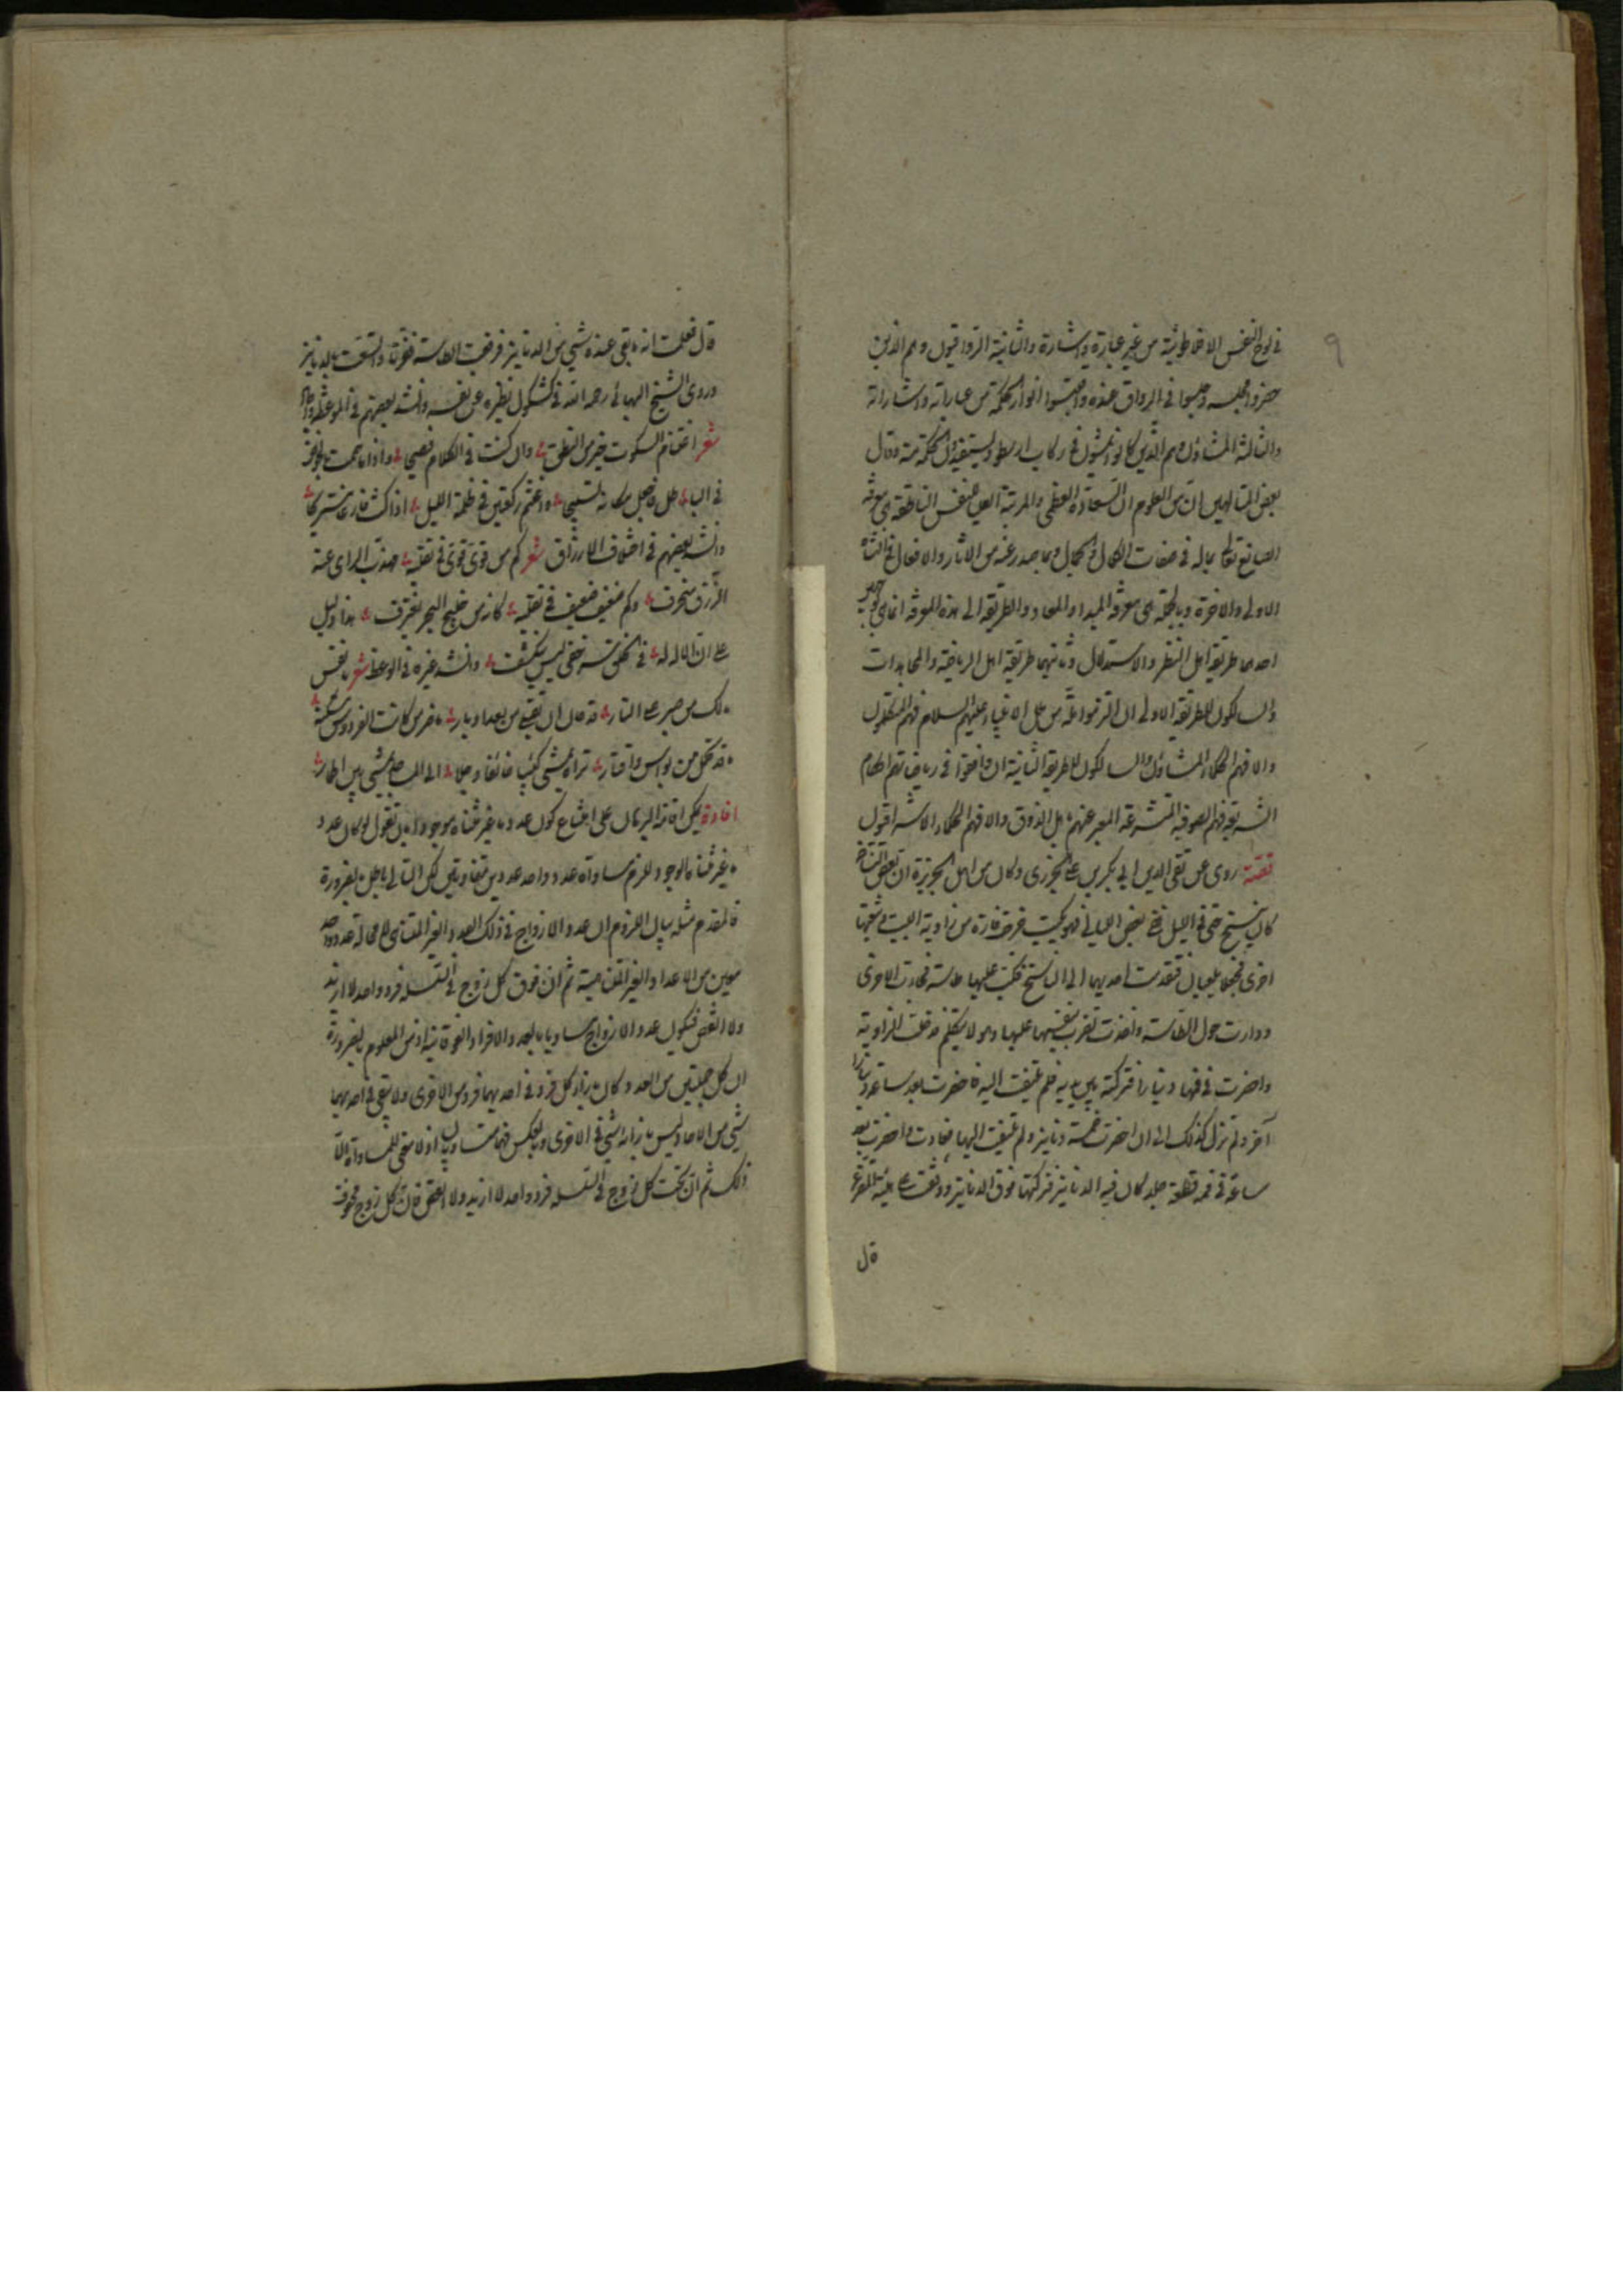 ٩
في لوح النفس الافلاطونية من غير عبارة واشارة والثانية الرواقيون وهم الذين
حضروا مجلسه وجلسوا في الرواق عنده واقتبسوا انوار الحكمة من عباراته واشاراته
والثالثة المشاؤن وهم الذين كانوا يمشون في ركاب ارسطو ويستفيدون الحكمة منه وقال
بعض المتالهين ان من العلوم ان السعادة العظمى والمرتبة العليا للنفس الناطقة هي معرفة
الصانع تعالى بماله في صفات الكمال والجمال وبما صدر عنه من الاثار والافعال في النشاة
الاولى والاخرة وبالجملة هي معرفة المبدا والمعاد والطريقة الى هذه المعرفة انما هي وجهين
احدهما طريقة اهل النظر والاستدلال وثانيهما طريقة اهل الرياضة والمجاهدات
والسالكون للطريقة الاولى ان التزموا ملة من ملل الانبياء عليهم السلام فهم المتكلمون
والا فهم الحكماء المشاؤن والسالكون للطريقة الثانية ان وافقوا في رياضاتهم احكام
الشريعة فهم الصوفية المتشرعة المعبر عنهم باهل الذوق والا فهم الحكماء الاشراقيون
قصة روى عن تقى الدين ابي بكر بن على الجزرى وكان من اهل الجزيرة ان بعض النساخ
كان ينسخ حتى في الليل ففي بعض الليالي فهو يكتب خرجت فارة من زاوية البيت وتبعتها
اخرى فجعلا يلعبان فتقدمت احديهما الى الناسخ فكبت عليها طاسة فجاءت الاخرى
ودارت حول الطاسة واخذت تضرب بنفسها عليها وهو لا يتكلم فدخلت الزاوية
واحضرت في فمها دينارا فتركته بين يديه فلم يلتفت اليه فاحضرت بعد ساعة دينارا
آخر ولم تزل كذلك الى ان احضرت خمسة دنانير ولم يلتفت اليها فعادت واحضرت بعد
ساعة في فمه قطعة جلد كان فيه الدنانير فتركتها فوق الدنانير ووقفت على
قال
قال فعلمت انه ما بقى عنده شي من الدنانير فرفعت الطاسة ففرتا وانتفعت بالدنانير
وروى الشيخ البهائي رحمه الله في كشكول نظيره عن نفسه وانشد بعضهم في الموعظة
شعر اغتنام السكوت خير من النطق وان كنت في الكلام فصيحا واذا ما هممت بالخوض
في الباطل فاجعل مكانه تسبيحا واغتنم ركعتين في ظلمة الليل اذا كنت فارغا مستريحا
وانشد بعضهم في اختلاف الارزاق شعر كم من قوى قوى في تقلبه مهذب الراى عنه
الرزق منحرف وكم ضعيف ضعيف في تقلبه كانه من خليج البحر يغترف هذا دليل
على ان الاله له في الخلق سر خفي ليس ينكشف وانشد غيره في الوعظ شعر يا نفس
مالك من صبر على النار قد حان ان تقبلى من بعد ادبار ما ضر من كانت الفردوس مسكنه
ماذا تحمل من بؤس واقتار تراه يمشى كئيبا خائفا وجلا الى المساجد يمشى بين اطمار
افادة يمكن اقامة البرهان على امتناع كون عدد ما غير متناه موجودا بان تقول لو كان عدد
ما غير متناه موجودا لزم مساواة عدد واحد عددين متفاوتين لكن التالي باطل بالضرورة
فالمقدم مثله بيان اللزوم ان عدد الازواج في ذلك العدد الغير المتناهي لا محالة عدد واحد
معين من الاعداد الغير المتناهية ثم ان فوق كل زوج في التسلسل فرد واحد لا ازيد
ولا انقص فيكون عدد الازواج مساويا بعدد الافراد الفوقانية اذ من المعلوم بالضرورة
ان كل جملتين من العدد كان بازاء كل فرد في احديهما فرد من الاخرى ولا يبقى في احديهما
شي من الاحاد ليس بازائه شي في الاخرى وبالعكس فهما متساويان اذ لا معنى للمساواة الا
ذلك ثم ان تحت كل زوج في التسلسل فرد واحد لا ازيد ولا انقص فان كل زوج محفوف